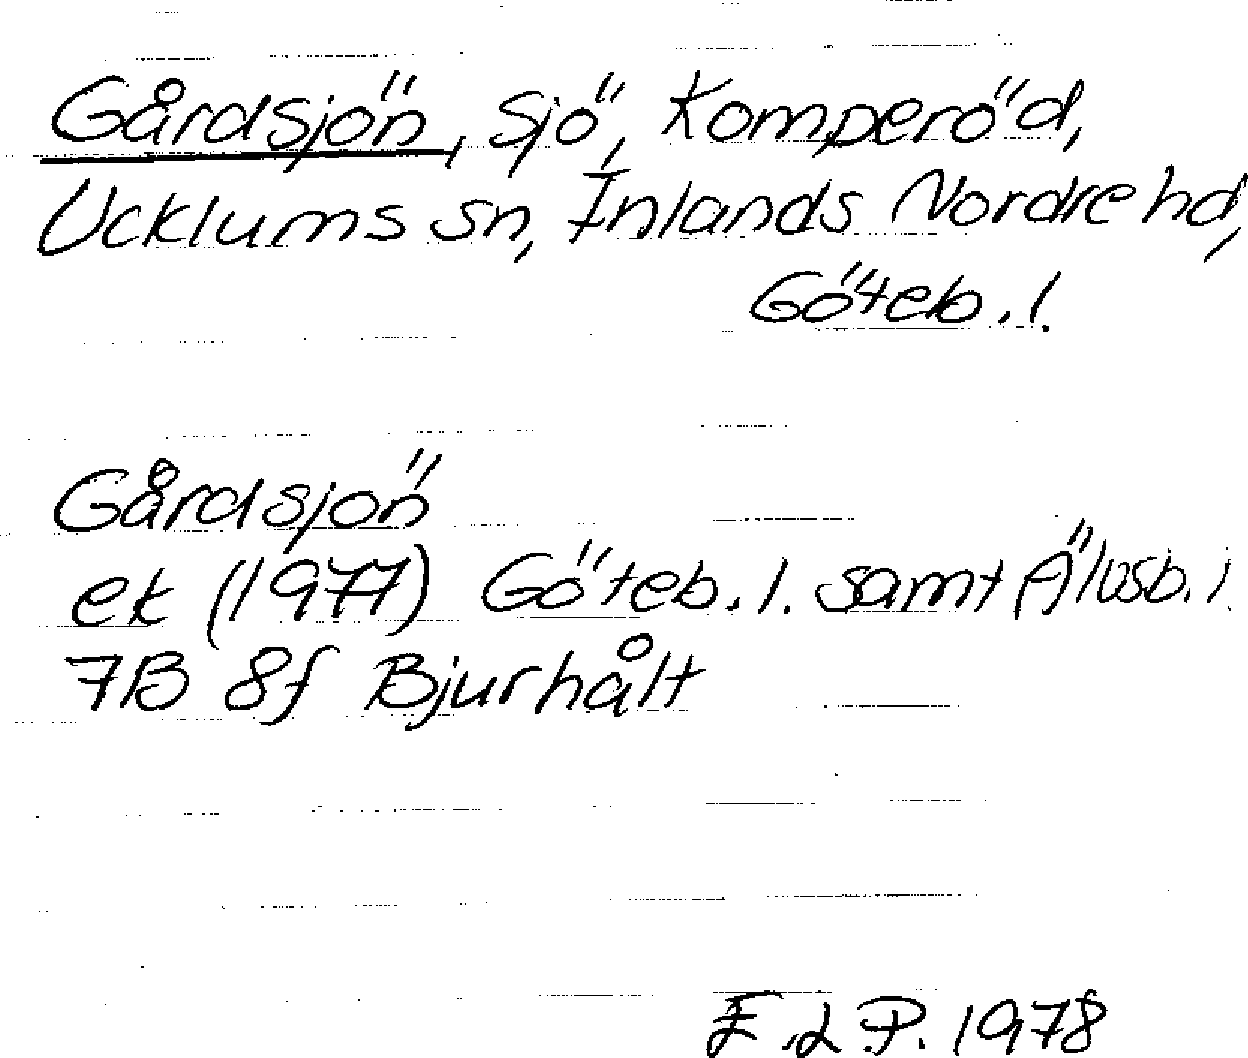 Gårdsjön, sjö, Komperöd,
Ucklums sn, Inlands Nordre hd,
Göteb. l.
Gårdsjön
ek (1977) Göteb. l. samt Älvsb. l
7B 8f Bjurhålt
E. L. P. 1978